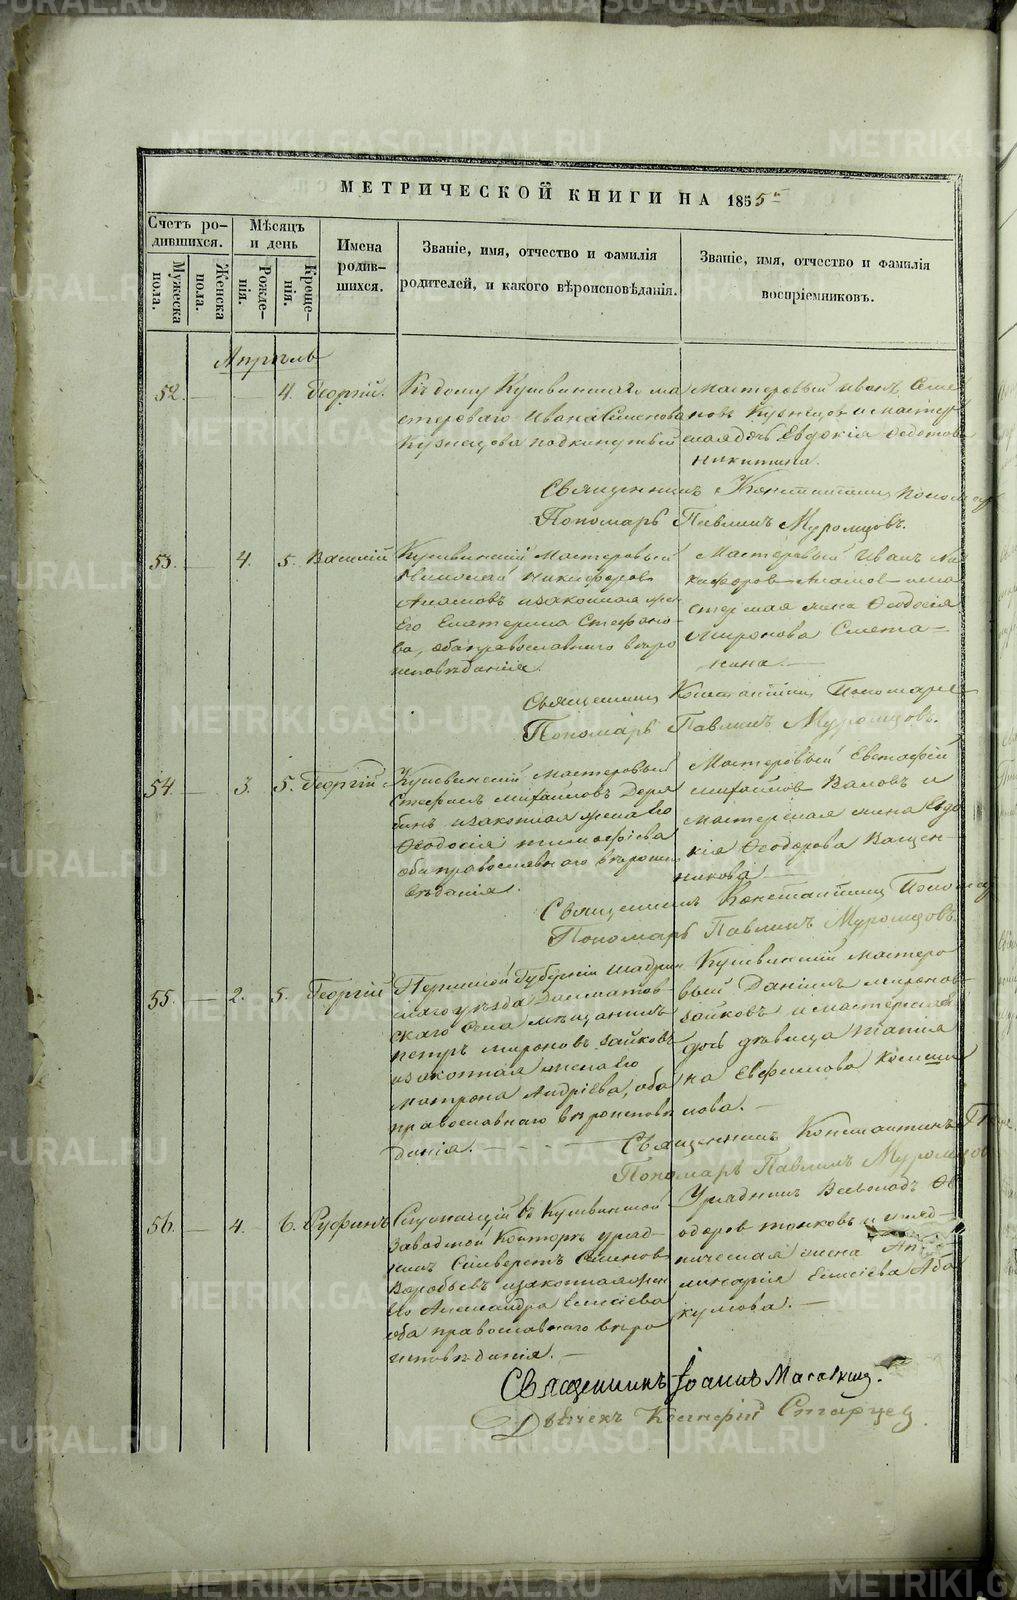 МЕТРИЧЕСКОЙ КНИГИ НА 1855й
Счетъ ро-
дившихся.
Мужеска
пола.
Женска
пола.
Мѣсяцъ
и день
Рожде-
нія.
Креще-
нія.
Имена
родив-
шихся.
Званіе, имя, отчество и фамилія
родителей, и какого вѣроисповѣданія.
Званіе, имя, отчество и фамилія
воспріемниковъ.
Апрѣль
52. 4. Георгій.
Къ дому Кушвинскаго ма
стероваго Ивана Симеонова
Кузнецова подкинутый
Мастеровый Иванъ Симе
новъ Кузнецовъ и мастер
ская дочь Евдокія Федотова
Никитина.
Священникъ Константинъ
Пономарь Павлинъ Муромцовъ.
53. — 4. 5. Василій
Кушвинскій Мастеровый
Николай Никифоровъ
и законная жен
Его Екатерина Стефано-
ва, оба православнаго вѣро
исповѣданія.
Мастеровый Иванъ Ни
кифоровъ и ма
стерская жена Ѳеодосія
Миронова Смета-
нина. —
Священникъ Константинъ
Пономарь Павлинъ Муромцовъ.
54. — 3. 5. Георгій
Кушвинскій мастеровый
Стефанъ Михайловъ Деря
бинъ и законная жена Его
Ѳеодосія Тимофѣева
оба православнаго вѣроиспо
вѣданія.
Мастеровый Евстафій
Михайловъ Валовъ и
мастерская жена Евдо
кія Ѳеодорова Ващен-
никова —
Священникъ Константинъ
Пономарь Павлинъ Муромцовъ.
55. — 2. 5. Георгій
Пермской Губерніи Шадрин
скаго уѣзда Далматов
скаго Села мѣщанинъ
Петръ Мироновъ Зайковъ
и законная жена Его
Матрона Андріева, оба
православнаго вѣроисповѣ
данія. —
Кушвинскій мастеро
вый Даніилъ Миронов
Зайковъ и мастерская
дочь дѣвица Татія
на Евфимова
нова. —
Священникъ Константинъ
Пономарь Павлинъ Муромцов
56. — 4. 6. Руфинъ
Служащій въ Кушвинской
Заводской Конторѣ уряд-
никъ Симеонов
Воробьевъ и законная жен
Его Александра Елисѣева
оба православнаго вѣро
исповѣданія. —
Урядникъ Всеволодъ Ѳе
одоров и уряд-
ническая жена Ап
линарія Елисѣева Аба
кумова. —
Священникъ Іоаннъ
Дьячекъ Старцев.